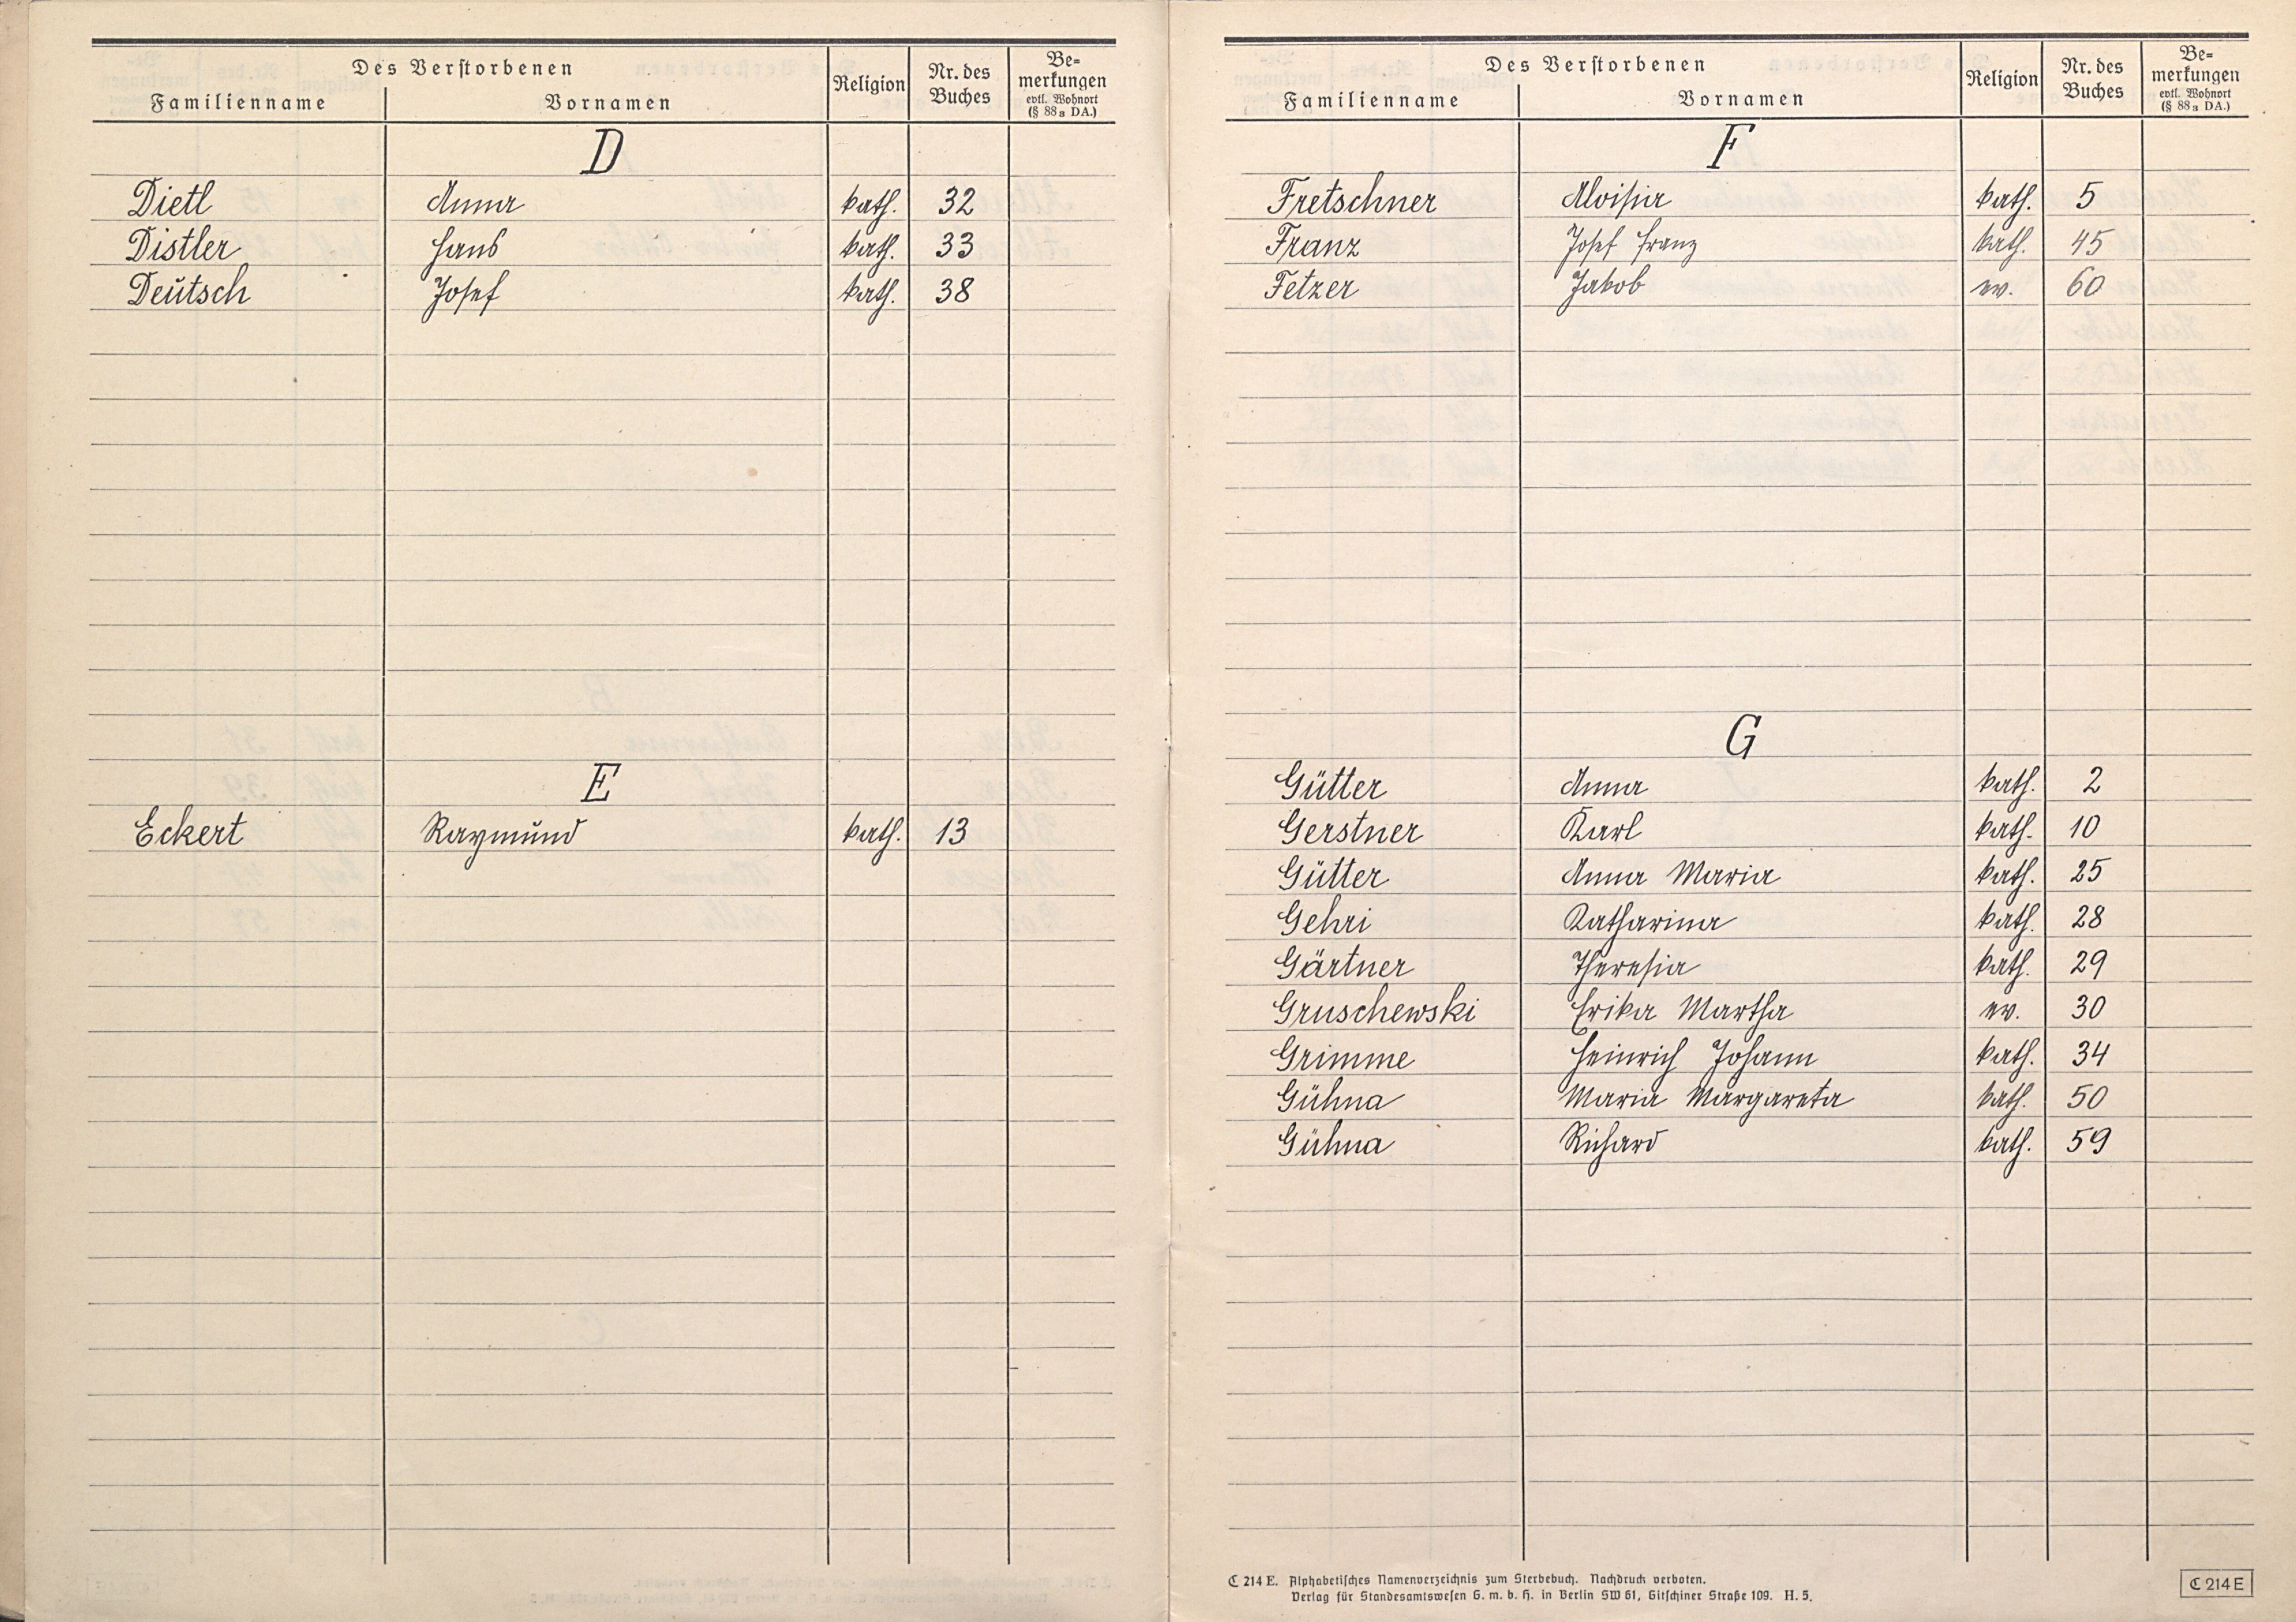 Des Verstorbenen
Familienname Vornamen Religion Nr. des Buches Be-
merkungen
evtl. Wohnort
(§ 88a DA.)
D
Dietl Anna kath. 32
Distler Hans kath. 33
Deutsch Josef kath. 38
E
Eckert Raymund kath. 13
Des Verstorbenen
Familienname Vornamen Religion Nr. des Buches Be-
merkungen
evtl. Wohnort
(§ 88a DA.)
F
Fretschner Aloisia kath. 5
Franz Josef Franz kath. 45
Fetzer Jakob ev. 60
G
Gütter Anna kath. 2
Gerstner Karl kath. 10
Gütter Anna Maria kath. 25
Gehri Katharina kath. 28
Gärtner Theresia kath. 29
Gruschewski Erika Martha ev. 30
Grimme Heinrich Johann kath. 34
Gühna Maria Margareta kath. 50
Gühna Richard kath. 59
C 214 E. Alphabetisches Namenverzeichnis zum Sterbebuch. Nachdruck verboten.
Verlag für Standesamtswesen G. m. b. H. in Berlin SW 61, Gitschiner Straße 109. H. 5.
C 214 E